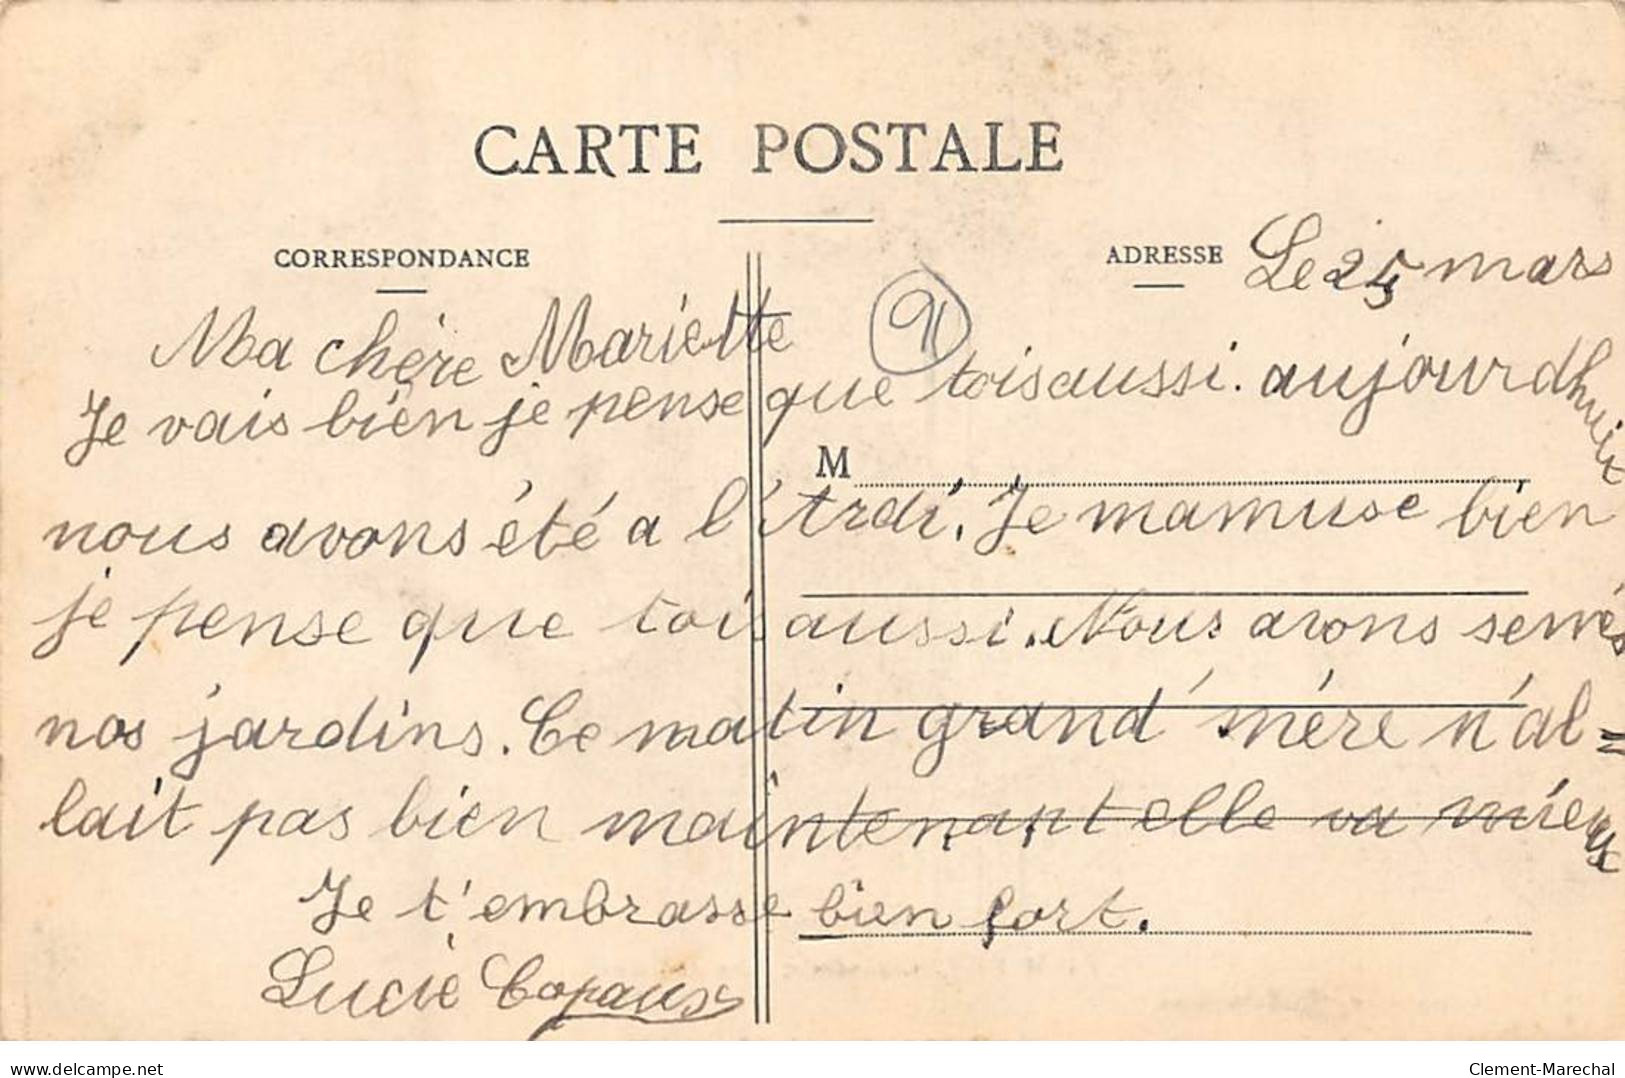 CARTE POSTALE
CORRESPONDANCE
ADRESSE
Le 25 mars
Ma chère Mariette
91
Je vais bien je pense que toisaussi. aujourdhuix
M
nous avons été a l'Ardi. Je mamuse bien
je pense que tois aussi. Nous avons semés
nos jardins. Ce matin grand'mère n'al=
lait pas bien maintenant elle va mieux
Je t'embrasse bien fort.
Lucie
delcampe.net
Clement-Marechal